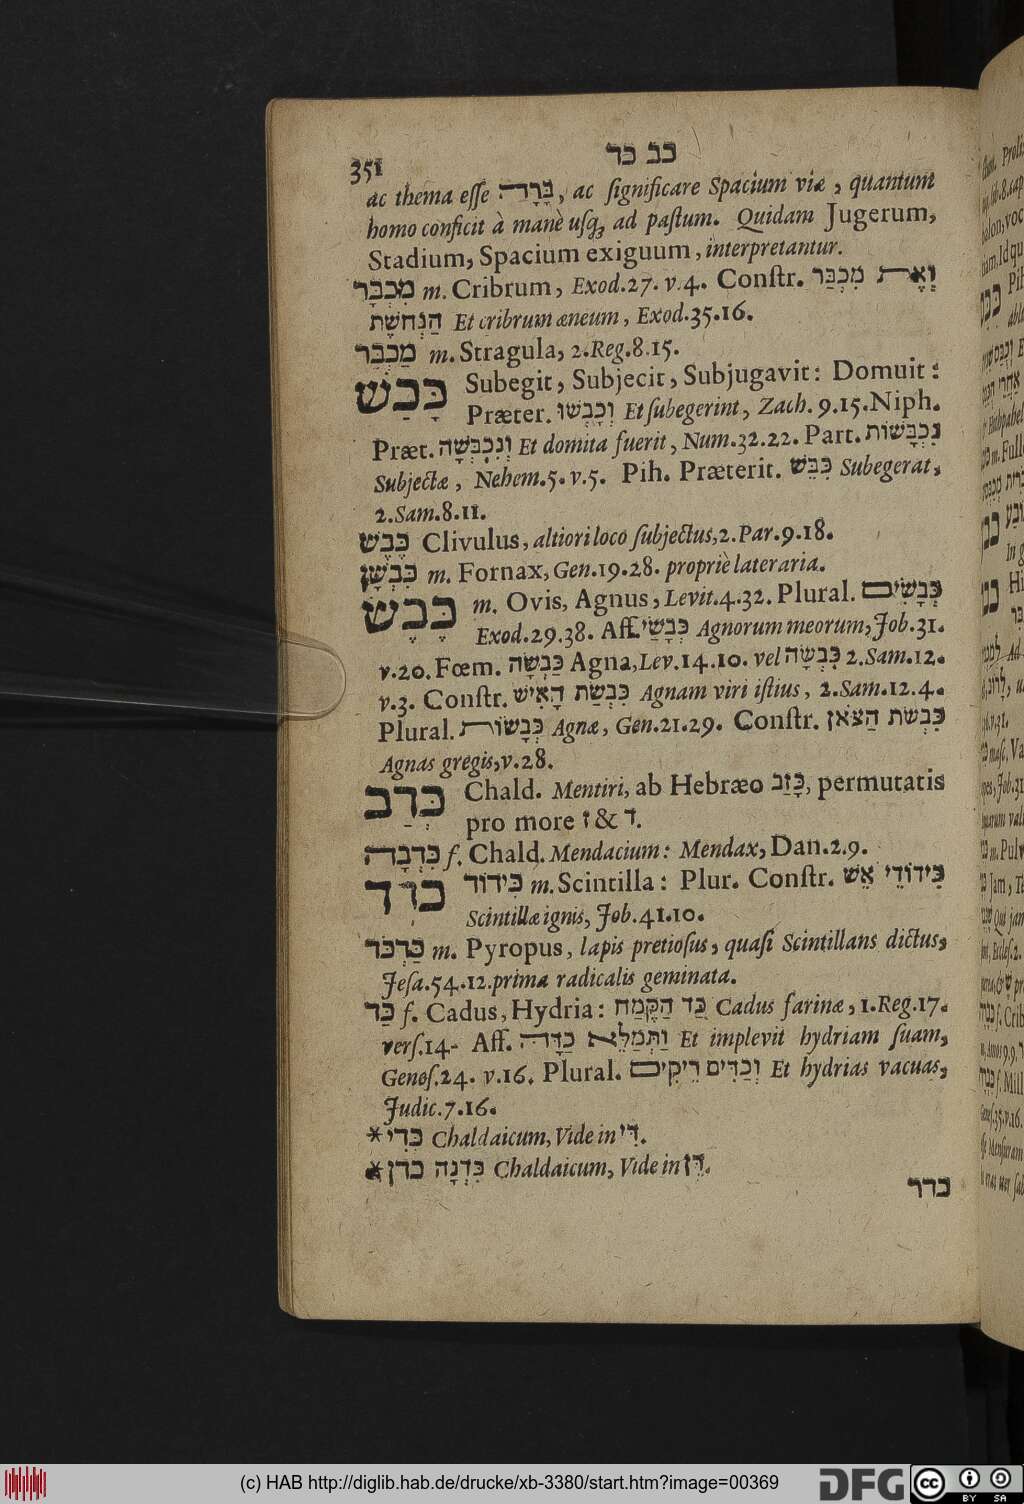 351 כב כד
ac thema esse כָּרָה, ac significare Spacium viæ, quantum
homo conficit à manè usq; ad pastum. Quidam Jugerum,
Stadium, Spacium exiguum, interpretantur.
מִכְבָּר m. Cribrum, Exod.27. v.4. Constr. וְאֶת מִכְבַּר
הַנְּחֹשֶׁת Et cribrum æneum, Exod.35.16.
מַכְבֵּר m. Stragula, 2.Reg.8.15.
כָּבַשׁ Subegit, Subjecit, Subjugavit: Domuit:
Præter. וְכָבְשׁוּ Et subegerint, Zach. 9.15. Niph.
Præt. וְנִכְבְּשָׁה Et domita fuerit, Num.32.22. Part. נִכְבָּשׁוֹת
Subjectæ, Nehem.5. v.5. Pih. Præterit. כִּבֵּשׁ Subegerat,
2.Sam.8.11.
כֶּבֶשׁ Clivulus, altiori loco subjectus, 2.Par.9.18.
כִּבְשָׁן m. Fornax, Gen.19.28. propriè lateraria.
כֶּבֶשׂ m. Ovis, Agnus, Levit.4.32. Plural. כְּבָשִׂים
Exod.29.38. Aff. כְּבָשַׂי Agnorum meorum, Job.31.
v.20. Fœm. כַּבְשָׂה Agna, Lev.14.10. vel כִּבְשָׂה 2.Sam.12.
v.3. Constr. כִּבְשַׂת הָאִישׁ Agnam viri istius, 2.Sam.12.4.
Plural. כְּבָשׂוֹת Agnæ, Gen.21.29. Constr. כִּבְשֹׂת הַצֹּאן
Agnas gregis, v.28.
כְּדַב Chald. Mentiri, ab Hebræo כָּזַב, permutatis
pro more ז & ד.
כִּדְבָה f. Chald. Mendacium: Mendax, Dan.2.9.
כדד כִּידוֹד m. Scintilla: Plur. Constr. כִּידוֹדֵי אֵשׁ
Scintillæ ignis, Job.41.10.
כַּדְכֹּד m. Pyropus, lapis pretiosus, quasi Scintillans dictus,
Jesa.54.12. prima radicalis geminata.
כַּד f. Cadus, Hydria: כַּד הַקֶּמַח Cadus farinæ, 1.Reg.17.
vers.14- Aff. וַתְּמַלֵּא כַדָּהּ Et implevit hydriam suam,
Genes.24. v.16. Plural. וְכַדִּים רֵיקִים Et hydrias vacuas,
Judic.7.16.
* כְּדִי Chaldaicum, Vide in דִּי.
* כדן כִּדְנָה Chaldaicum, Vide in דֵּן.
כדר
(c) HAB http://diglib.hab.de/drucke/xb-3380/start.htm?image=00369
DFG
cc BY SA